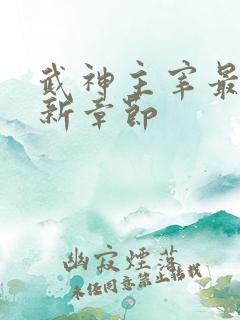 武神主宰最
新章节
幽寂煙落
未经同意禁止转载